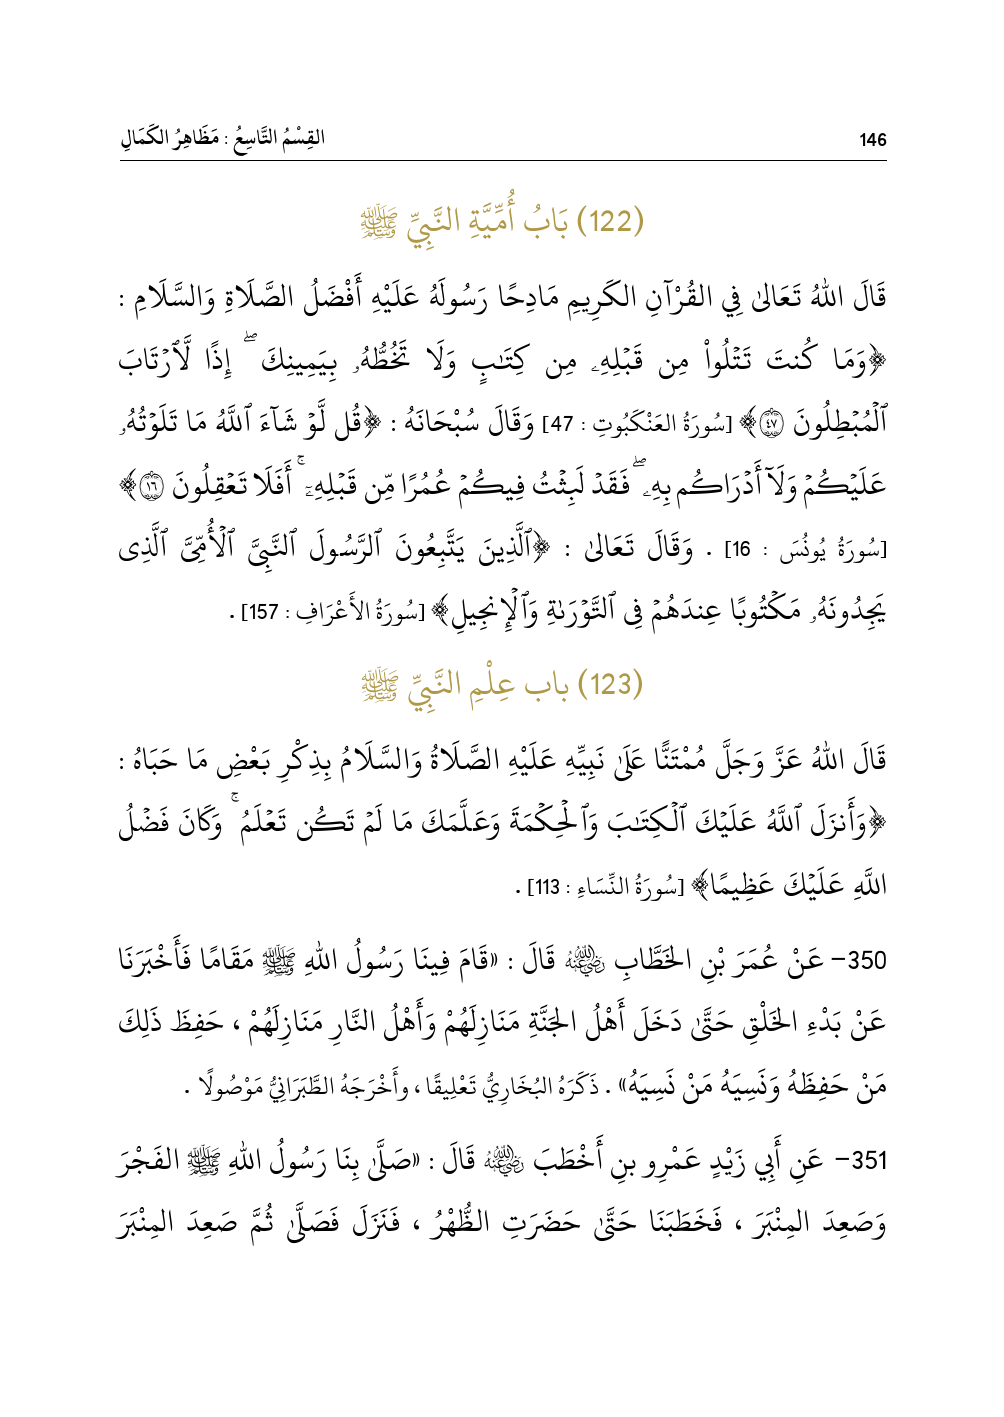 146 القِسْمُ التَّاسِعُ : مَظَاهِرُ الكَمَالِ
(122) بَابُ أُمِّيَّةِ النَّبِيِّ ﷺ
قَالَ اللهُ تَعَالىٰ فِي القُرْآنِ الكَرِيمِ مَادِحًا رَسُولَهُ عَلَيْهِ أَفْضَلُ الصَّلَاةِ وَالسَّلَامِ :
﴿وَمَا كُنتَ تَتْلُواْ مِن قَبْلِهِۦ مِن كِتَٰبٍ وَلَا تَخُطُّهُۥ بِيَمِينِكَ ۖ إِذًا لَّٱرْتَابَ
ٱلْمُبْطِلُونَ ٤٧﴾ [سُورَةُ العَنْكَبُوتِ : 47] وَقَالَ سُبْحَانَهُ : ﴿قُل لَّوْ شَآءَ ٱللَّهُ مَا تَلَوْتُهُۥ
عَلَيْكُمْ وَلَآ أَدْرَاكُم بِهِۦ ۖ فَقَدْ لَبِثْتُ فِيكُمْ عُمُرًا مِّن قَبْلِهِۦٓ ۚ أَفَلَا تَعْقِلُونَ ١٦﴾
[سُورَةُ يُونُسَ : 16] . وَقَالَ تَعَالىٰ : ﴿ٱلَّذِينَ يَتَّبِعُونَ ٱلرَّسُولَ ٱلنَّبِىَّ ٱلْأُمِّىَّ ٱلَّذِى
يَجِدُونَهُۥ مَكْتُوبًا عِندَهُمْ فِى ٱلتَّوْرَىٰةِ وَٱلْإِنجِيلِ﴾ [سُورَةُ الأَعْرَافِ : 157] .
(123) باب عِلْمِ النَّبِيِّ ﷺ
قَالَ اللهُ عَزَّ وَجَلَّ مُمْتَنًّا عَلَىٰ نَبِيِّهِ عَلَيْهِ الصَّلَاةُ وَالسَّلَامُ بِذِكْرِ بَعْضِ مَا حَبَاهُ :
﴿وَأَنزَلَ ٱللَّهُ عَلَيْكَ ٱلْكِتَٰبَ وَٱلْحِكْمَةَ وَعَلَّمَكَ مَا لَمْ تَكُن تَعْلَمُ ۚ وَكَانَ فَضْلُ
اللَّهِ عَلَيْكَ عَظِيمًا﴾ [سُورَةُ النِّسَاءِ : 113] .
350– عَنْ عُمَرَ بْنِ الخَطَّابِ رَضِيَ اللهُ عَنْهُ قَالَ : «قَامَ فِينَا رَسُولُ اللهِ ﷺ مَقَامًا فَأَخْبَرَنَا
عَنْ بَدْءِ الخَلْقِ حَتَّىٰ دَخَلَ أَهْلُ الجَنَّةِ مَنَازِلَهُمْ وَأَهْلُ النَّارِ مَنَازِلَهُمْ ، حَفِظَ ذَلِكَ
مَنْ حَفِظَهُ وَنَسِيَهُ مَنْ نَسِيَهُ» . ذَكَرَهُ البُخَارِيُّ تَعْلِيقًا ، وأَخْرَجَهُ الطَّبَرَانِيُّ مَوْصُولًا .
351– عَنِ أَبِي زَيْدٍ عَمْرِو بنِ أَخْطَبَ رَضِيَ اللهُ عَنْهُ قَالَ : «صَلَّىٰ بِنَا رَسُولُ اللهِ ﷺ الفَجْرَ
وَصَعِدَ المِنْبَرَ ، فَخَطَبَنَا حَتَّىٰ حَضَرَتِ الظُّهْرُ ، فَنَزَلَ فَصَلَّىٰ ثُمَّ صَعِدَ المِنْبَرَ